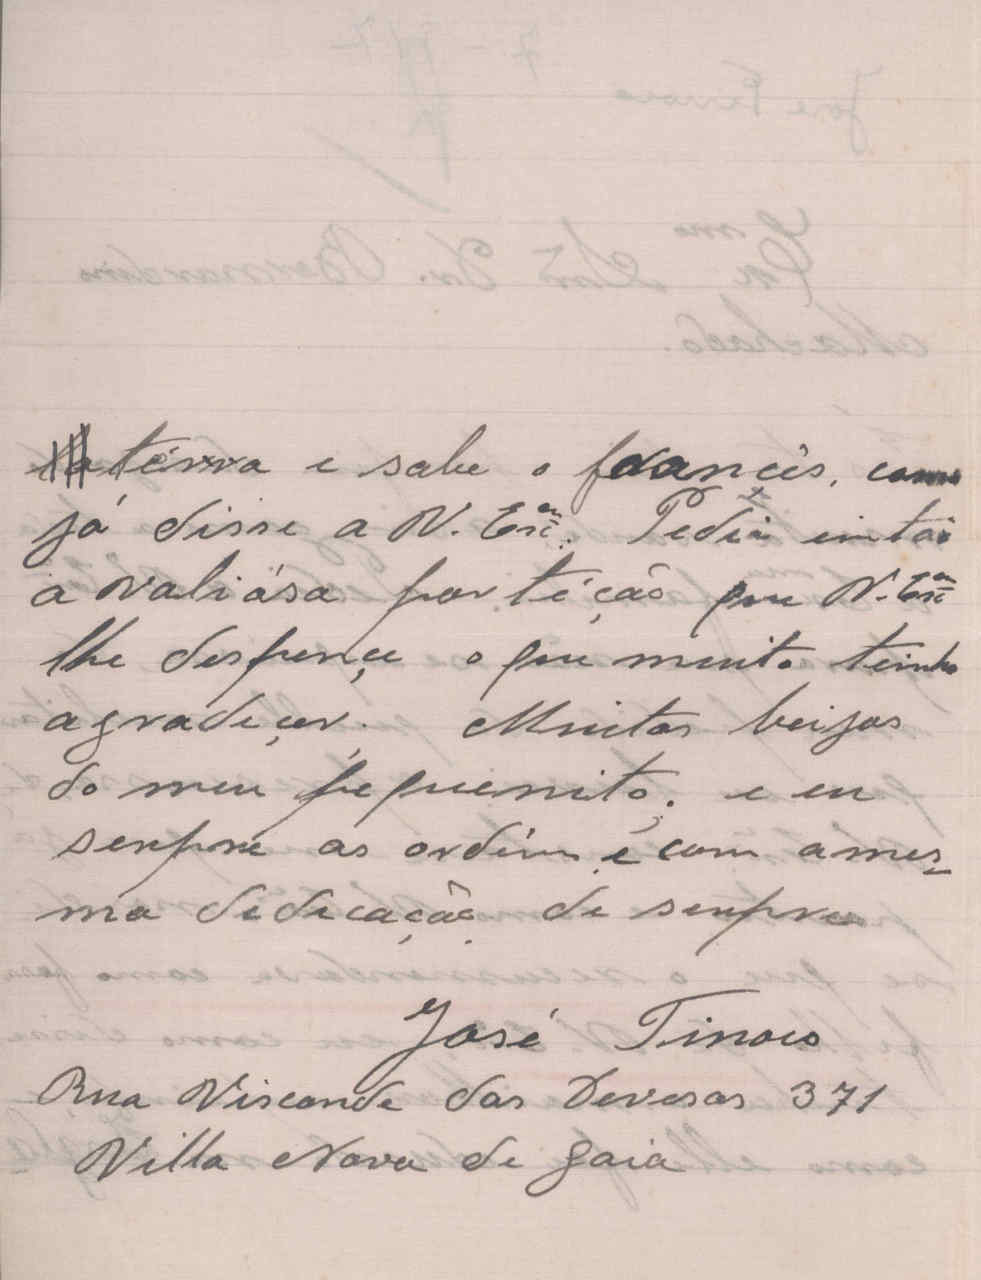 terra e sabe o francês, como
já disse a V. Exª. Pedia então
a valiósa portéção que V. Exª
lhe despençe o que muito tenho
agradeçer. Muitos beijos
do meu pequenito, e eu
senpre as ordéns e com a mes-
ma dedicação de senpre
José Tinoco
Rua Visconde das Devesas 371
Villa Nova de Gaia